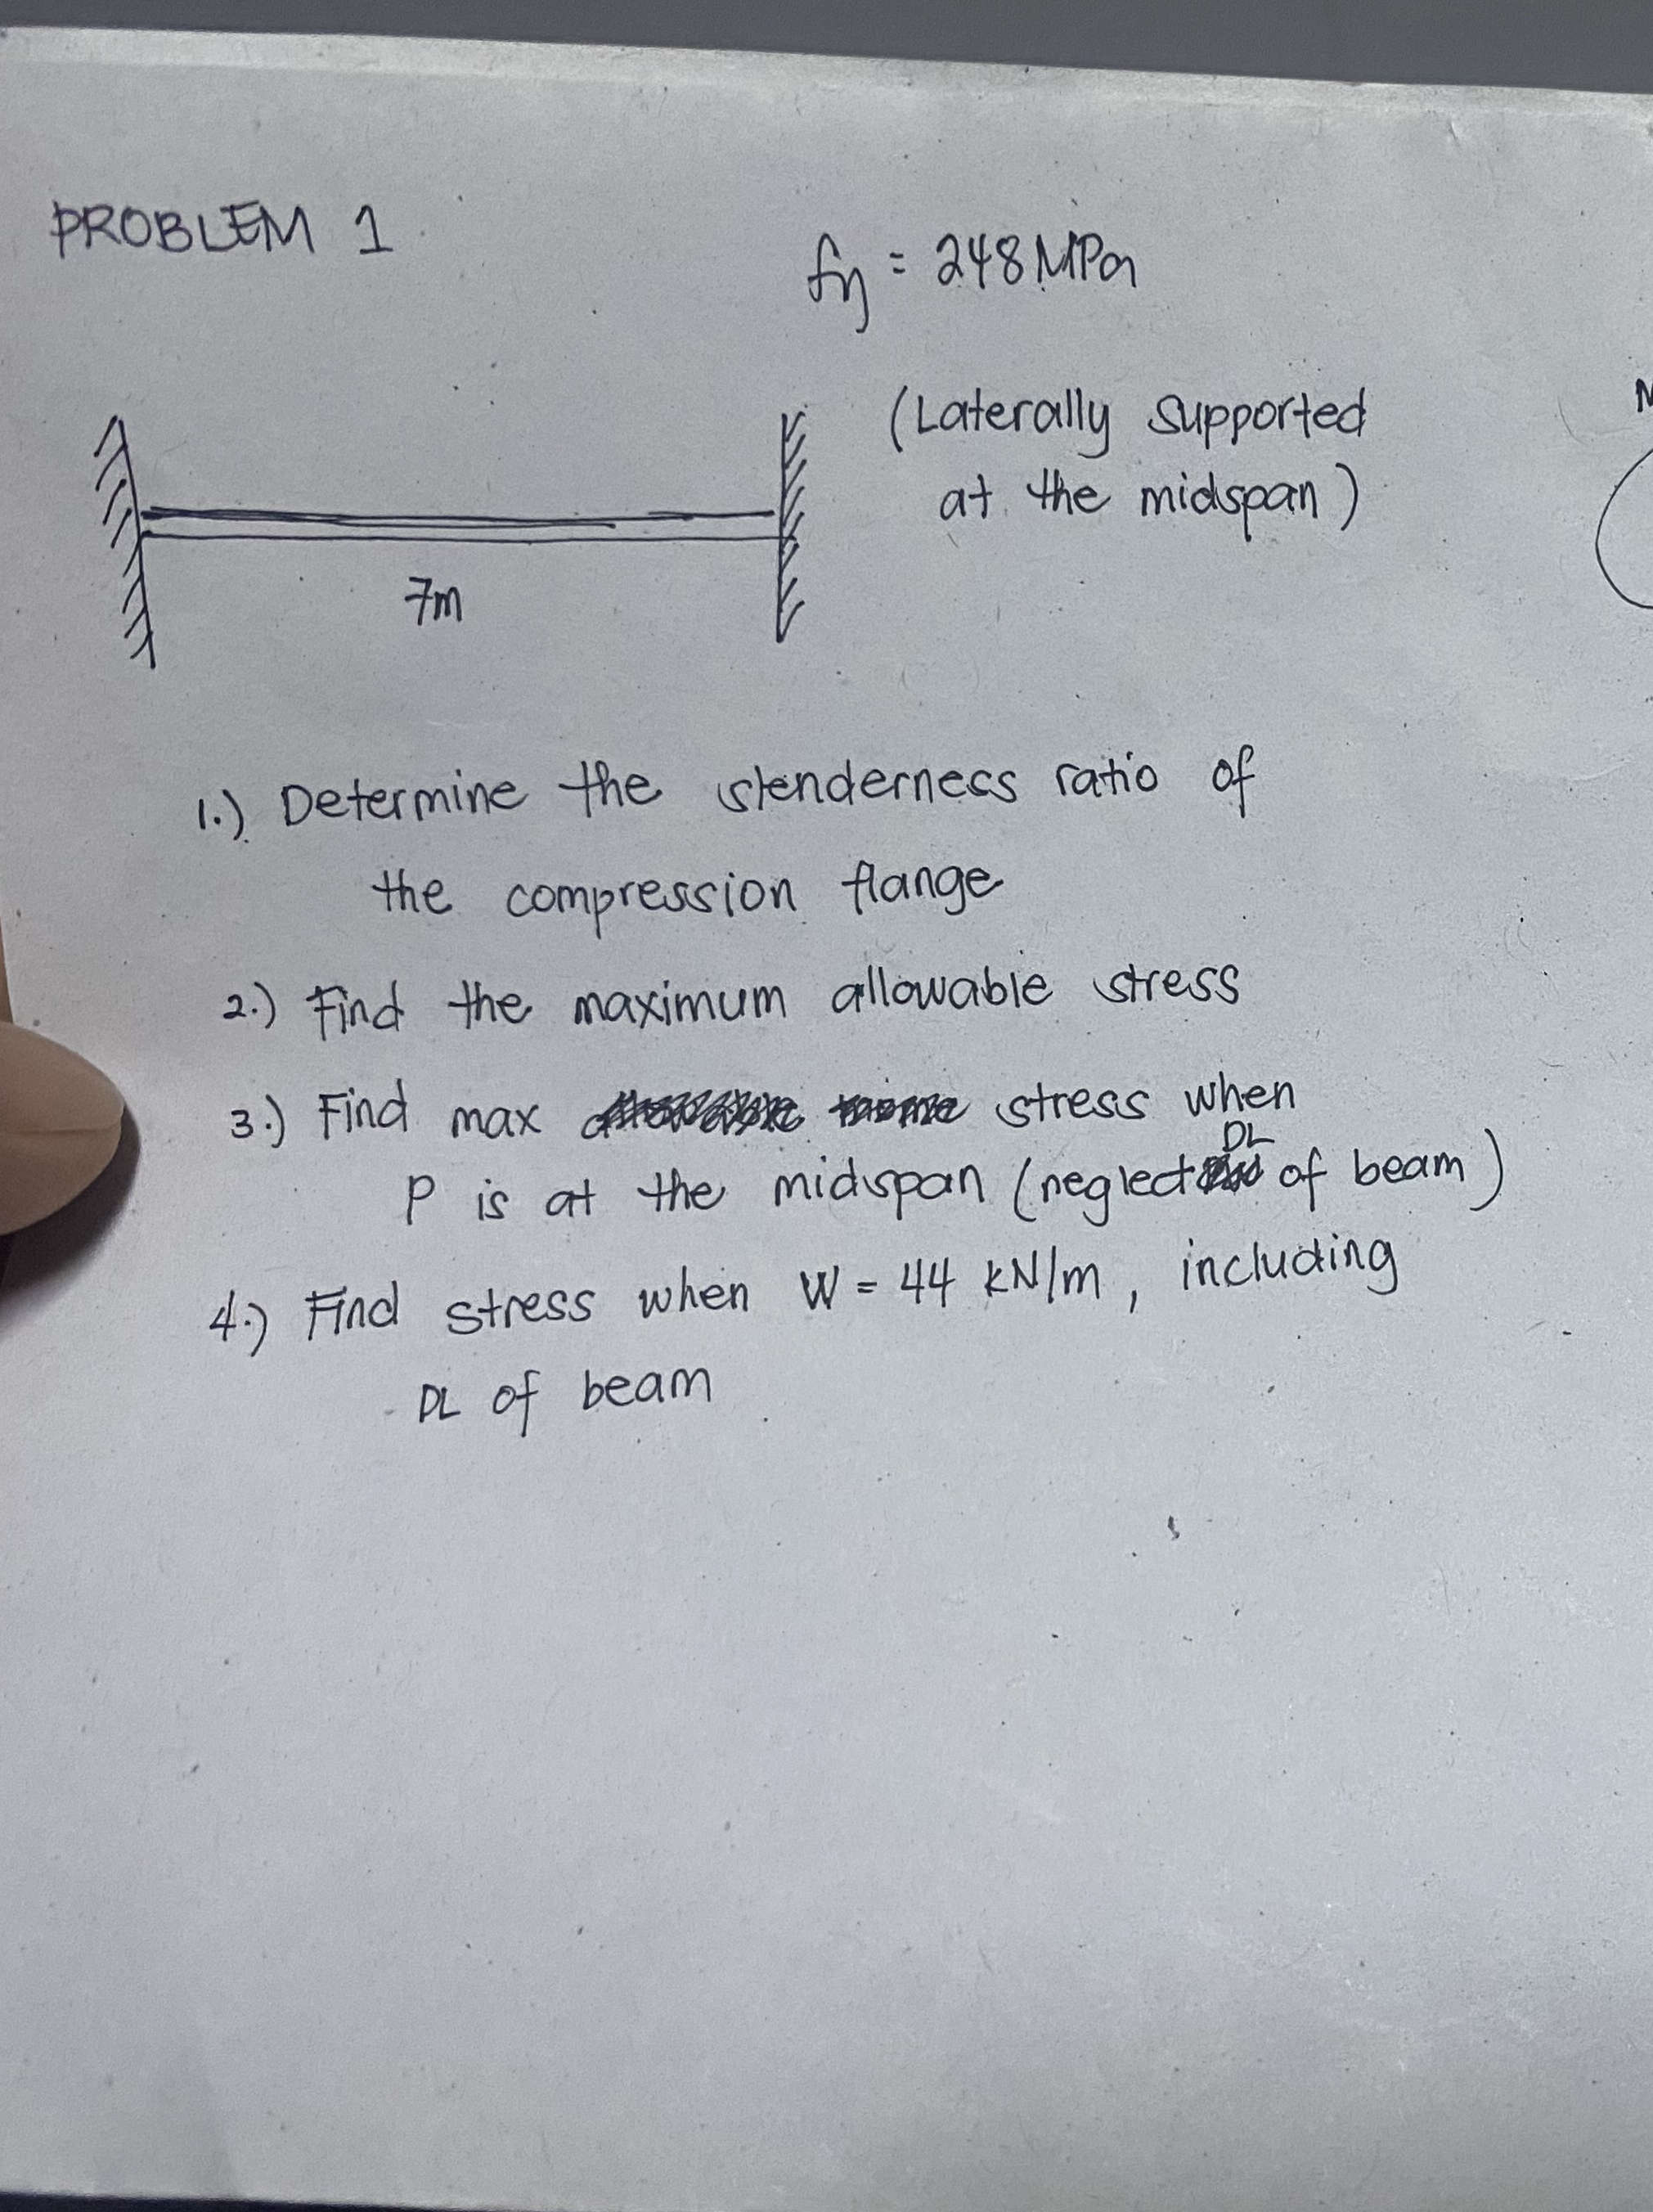 PROBLEM 1
fy = 248 MPa
(Laterally supported
at the midspan)
7m
1.) Determine the slenderness ratio of
the compression flange
2.) Find the maximum allowable stress
3.) Find max stress when
P is at the midspan (neglect DL of beam)
4.) Find stress when W = 44 kN/m, including
DL of beam